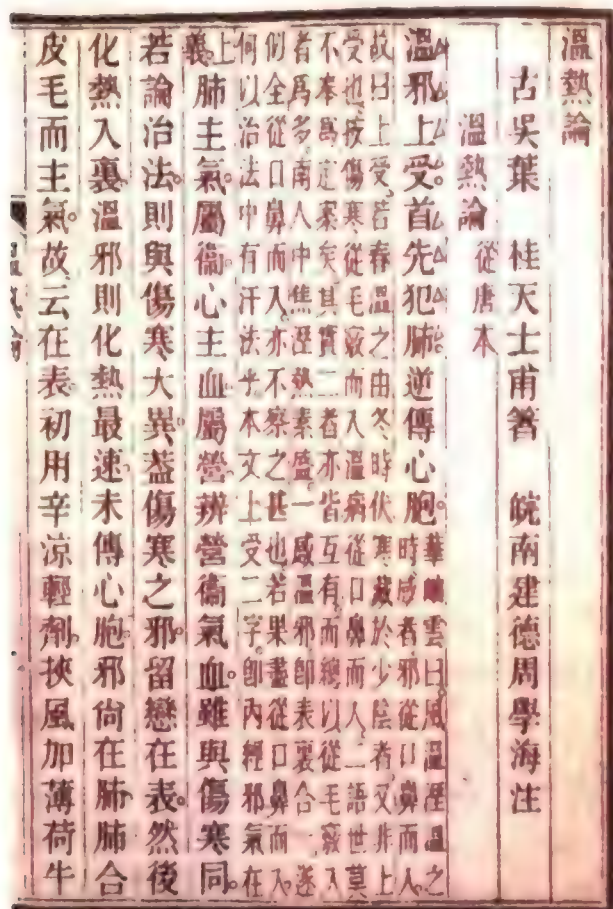 溫熱論
古吳葉 桂天士甫著 皖南建德周學海注
溫熱論 從唐本
溫邪上受。首先犯肺。逆傳心胞。華岫雲曰風溫溼溫之
時感者邪從口鼻而入
故曰上受若春溫之由冬時伏寒藏於少陰者又非上
受也按傷寒從毛竅而入溫病從口鼻而入二語世莫
不奉爲定案矣其實二者亦皆互有而總以從毛竅入
者爲多南人中焦溼熱素盛一感溫邪卽表裏合一遂
似全從口鼻而入亦不察之甚也若果盡從口鼻而入
何以治法中有汗法乎本文上受二字卽內經邪氣在
上義肺主氣。屬衞。心主血。屬營。辨營衞氣血。雖與傷寒同。
若論治法。則與傷寒大異。葢傷寒之邪。留戀在表。然後
化熱入裏。溫邪則化熱最速。未傳心胞。邪尙在肺。肺合
皮毛而主氣。故云在表。初用辛涼輕劑。挾風加薄荷牛